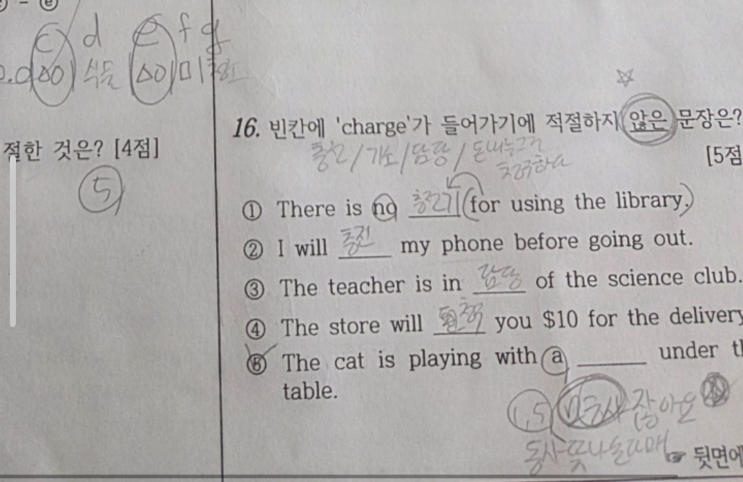 c d e f g
절한 것은? [4점]
⑤
16. 빈칸에 'charge'가 들어가기에 적절하지 않은 문장은?
충전/기소/담당/
[5점
① There is no 충전기 for using the library.
② I will 충전 my phone before going out.
③ The teacher is in 담당 of the science club.
④ The store will 청구 you $10 for the delivery
⑤ The cat is playing with a ______ under th
table.
1, 5 명사 잖아요
☞ 뒷면에